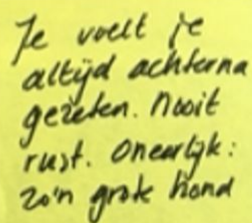 Je voelt je
altijd achterna
gezeten. Nooit
rust. Oneerlijk:
zo'n grote hond